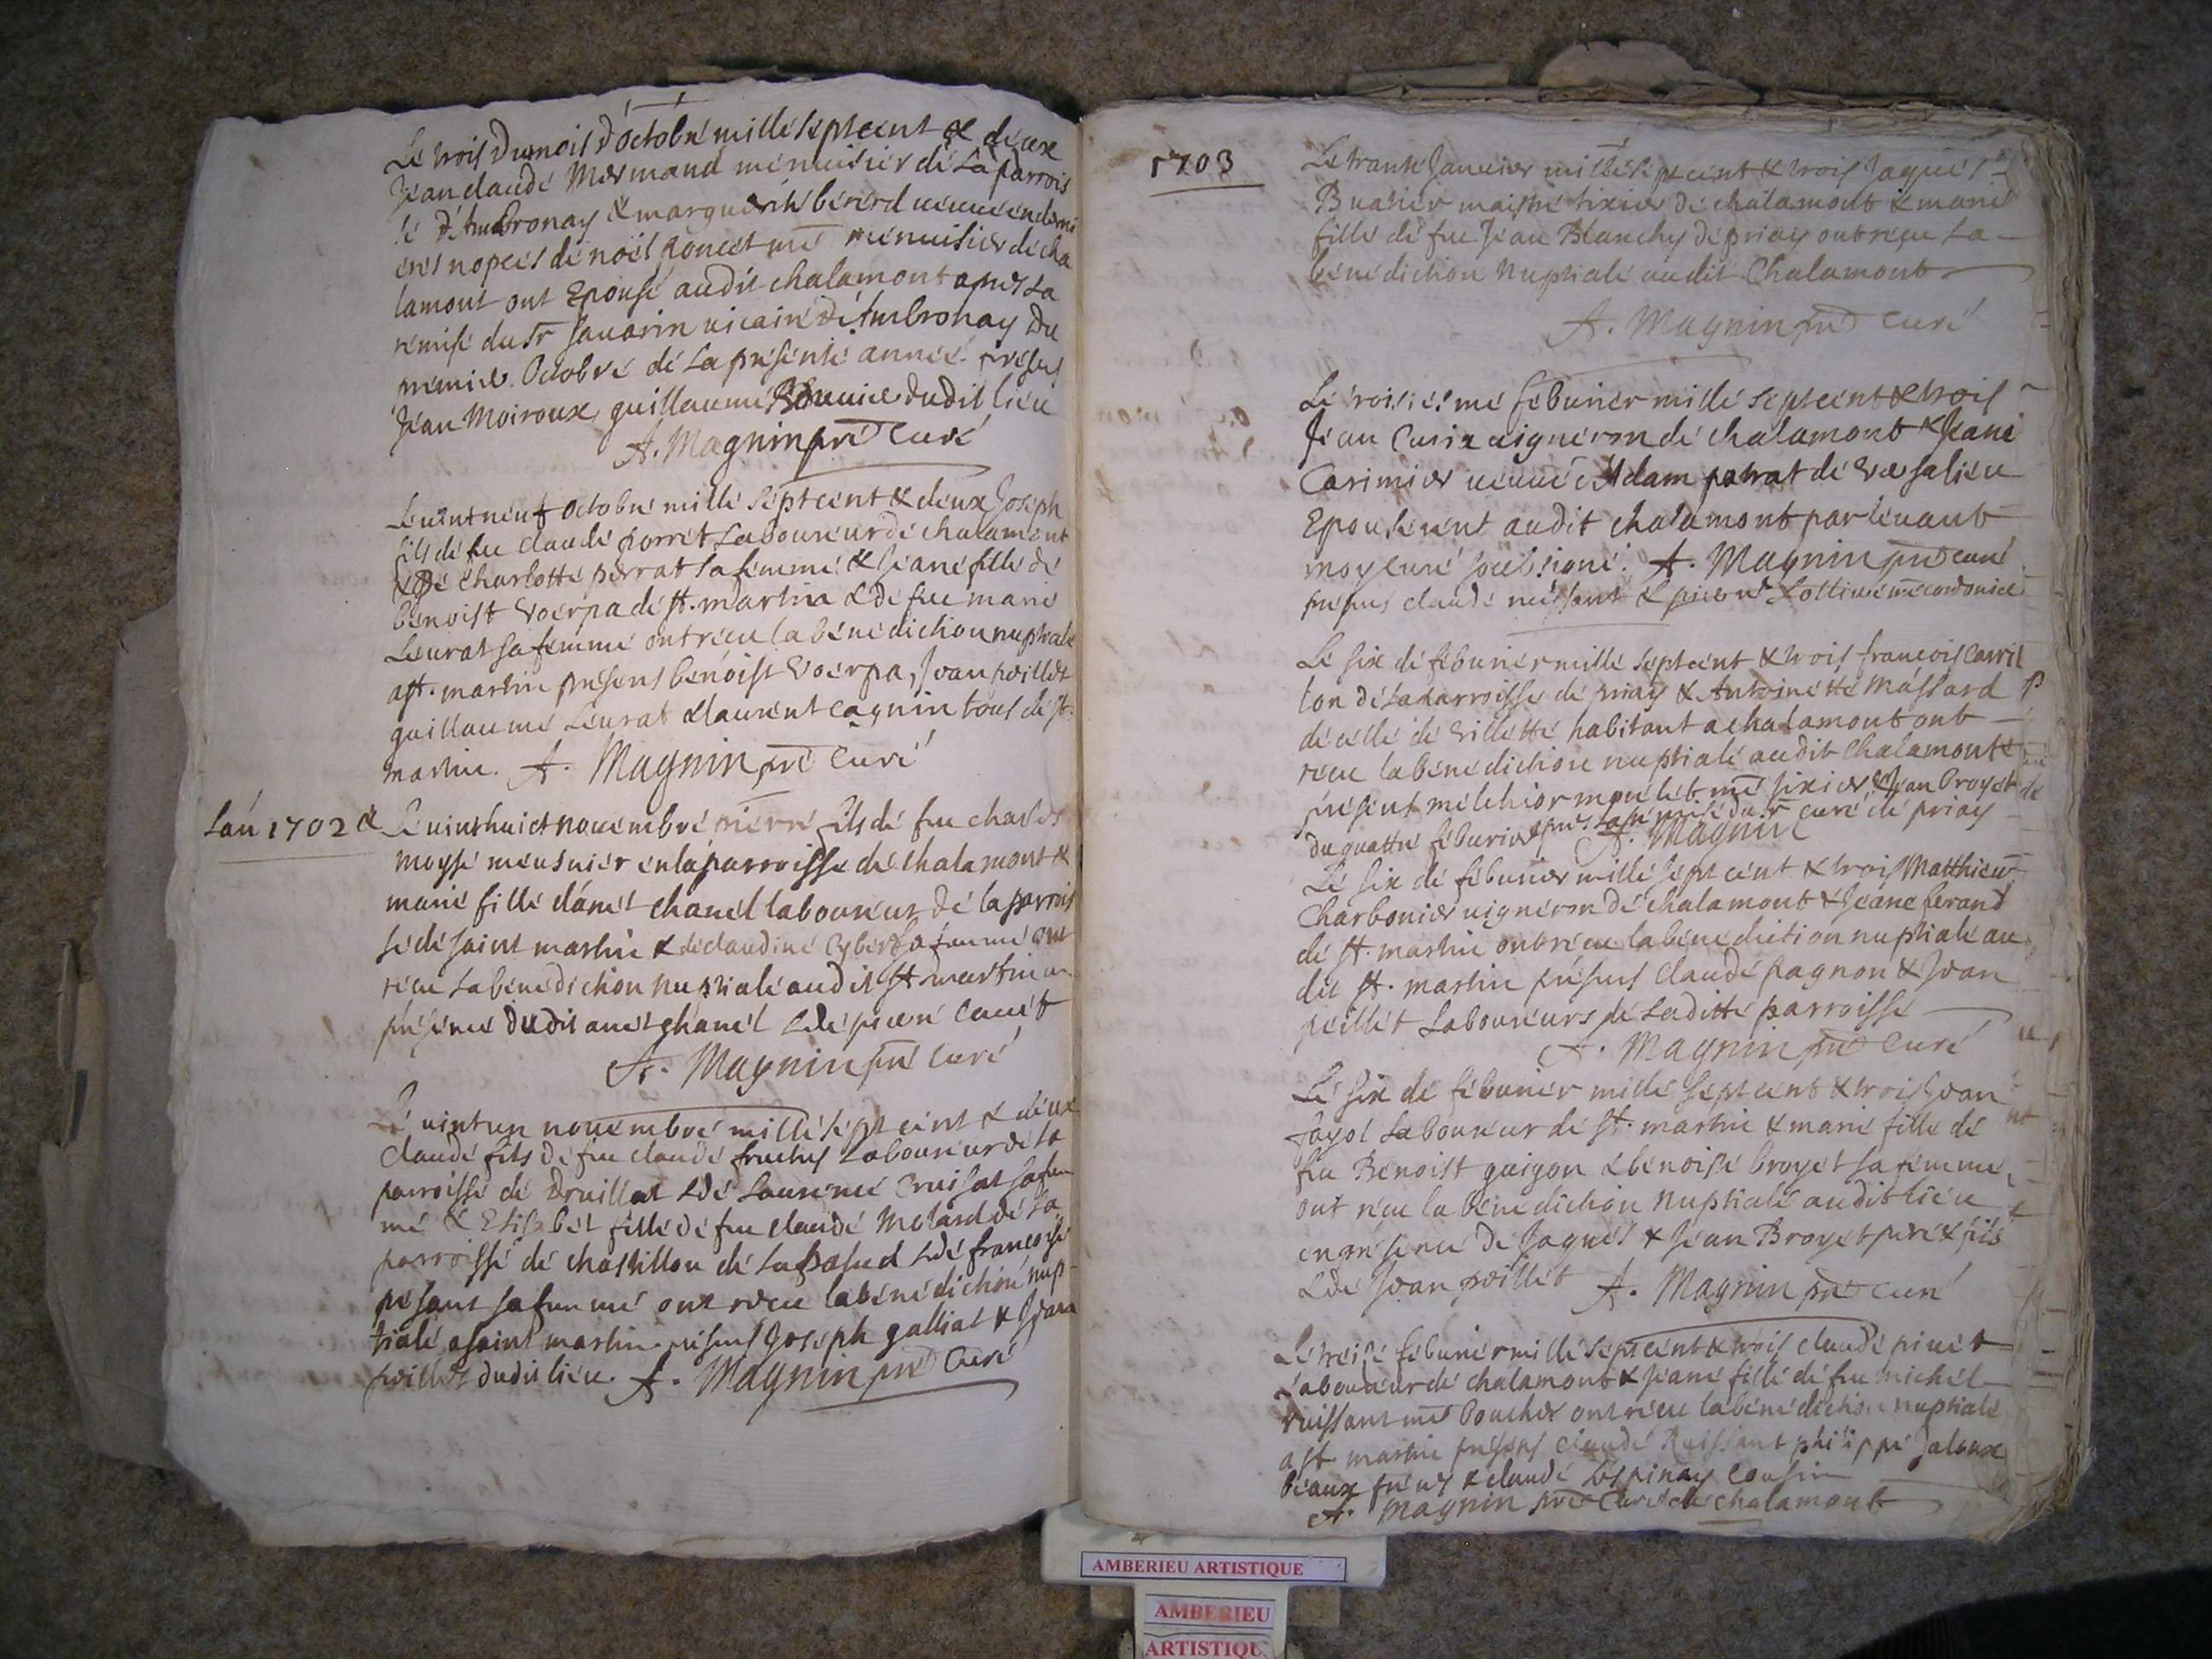 Le trois du mois d'octobre mille septcent & deux
Jean claude Mermand menuisier de La parrois
se d'Ambronay & marguerite bererd veuve en derni
eres nopces de noël poncet me menuisier de cha
lamont ont Epousé audit chalamont apres La
remise du Sr Savarin vicaire d'Ambronay Du
premier Octobre de La presente année. presens
Jean Moiroux guillaume Bouvier dudit lieu
A. Magnin pre Curé
Le vintneuf octobre mille septcent & deux Joseph
fils de feu claude porret Laboureur de chalamont
& de charlotte perrat sa femme & Jeane fille de
benoist voerpa de st. martin & de feu marie
Leurat sa femme ont receu la benediction nuptiale
a st. martin presens benoist voerpa, Jean peillet
guillaume Leurat & laurent cagnin tous de st.
martin. A. Magnin pre Curé
Lan 1702 & Le vinthuict novembre pierre fils de feu charles
moyse meusnier en la parroisse de chalamont &
marie fille d'amet chanel laboureur de la parrois
se de saint martin & de claudine Cyberd sa femme ont
receu la benediction nuptiale audit st martin en
presence dudit amet chanel & de pierre Canet
A. Magnin pre Curé
Le vintun novembre mille septcent & deux
Claude fils de feu claude fruchis Laboureur de La
parroisse de Druillat & de Laurence Cruisat sa fem
me & Elisabet fille de feu claude Molard de La
parroisse de chastillon de La palud & de françoise
pesant sa femme ont receu la benediction nup
tiale a saint martin. presens Joseph galliat & Jean
peillet dudit lieu. A. Magnin pre Curé
1703
Le trante Janvier mille septcent & trois Jaques
Buatier maistre tixier de chalamont & marie
fille de feu Jean Blanchy de priay ont receu La
benediction Nuptiale audit Chalamont
A. Magnin pre Curé
Le troisiesme febvrier mille septcent & trois
Jean Curix vigneron de chalamont & Jeane
Carimier veuve Adam patrat de versalieu
Epouserent audit chalamont pardevant
moy curé soubsigné. A. Magnin pre curé
presens claude ruissant & pierre Lottive me cordonier
Le six de febvrier mille septcent & trois françois carril
lon de la parroisse de priay & Antoinette Massard
de celle de villette habitant a chalamont ont
receu la benediction nuptiale audit chalamont
present melchior monlet me tixier & Jean Broyet
du quattre febvrier apres la remise du Sr curé de priay
A. Magnin
Le six de febvrier mille septcent & trois Matthieu
Charbonier vigneron de chalamont & Jeane ferand
de st. martin ont receu la benediction nuptiale au
dit st. martin presens Claude pagnon & Jean
peillet Laboureurs de Laditte parroisse
A. Magnin pre Curé
Le six de febvrier mille septcent & trois Jean
Fayol Laboureur de st. martin & marie fille de
feu Benoist guigon & benoise broyet sa femme
ont receu la benediction Nuptiale audit lieu
en presence de Jaques & Jean Broyet pere & fils
& de Jean peillet A. Magnin pre Curé
Le treise febvrier mille septcent & trois claude pinet
Laboureur de chalamont & Jeane fille de feu michel
ruissant me Boucher ont receu la benediction nuptiale
a st. martin presens claude Ruissant philippe Jaloux
beaux freres & claude Lespinay Cousin
A. Magnin pre Curé de chalamont
AMBERIEU ARTISTIQUE
AMBERIEU
ARTISTIQU